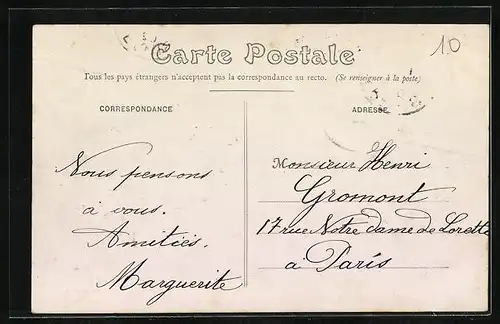 10
Carte Postale
Tous les pays étrangers n'acceptent pas la correspondance au recto. (Se renseigner à la poste)
CORRESPONDANCE
ADRESSE
Nous pensons
à vous.
Amitiés.
Marguerite
Monsieur Henri
Gromont
17 rue Notre dame de Lorette
a Paris